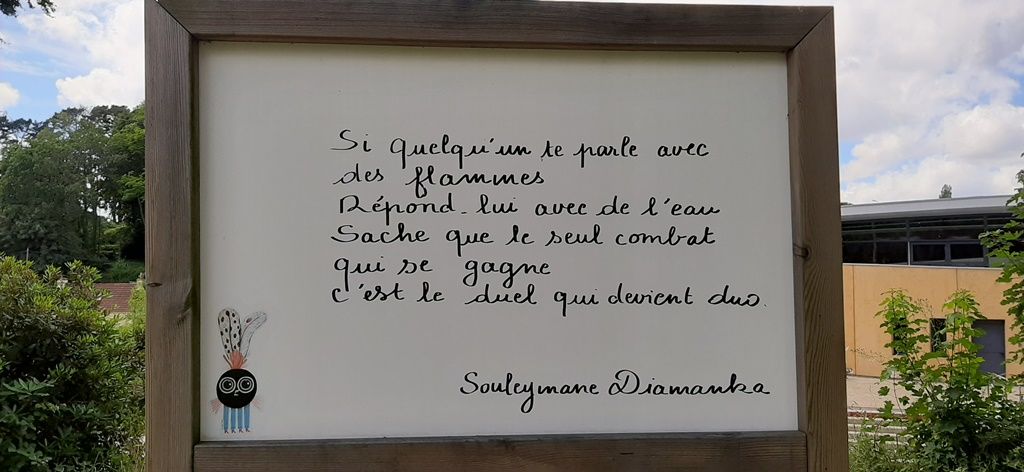 Si quelqu'un te parle avec
des flammes
Répond-lui avec de l'eau
Sache que le seul combat
qui se gagne
c'est le duel qui devient duo.
Souleymane Diamanka